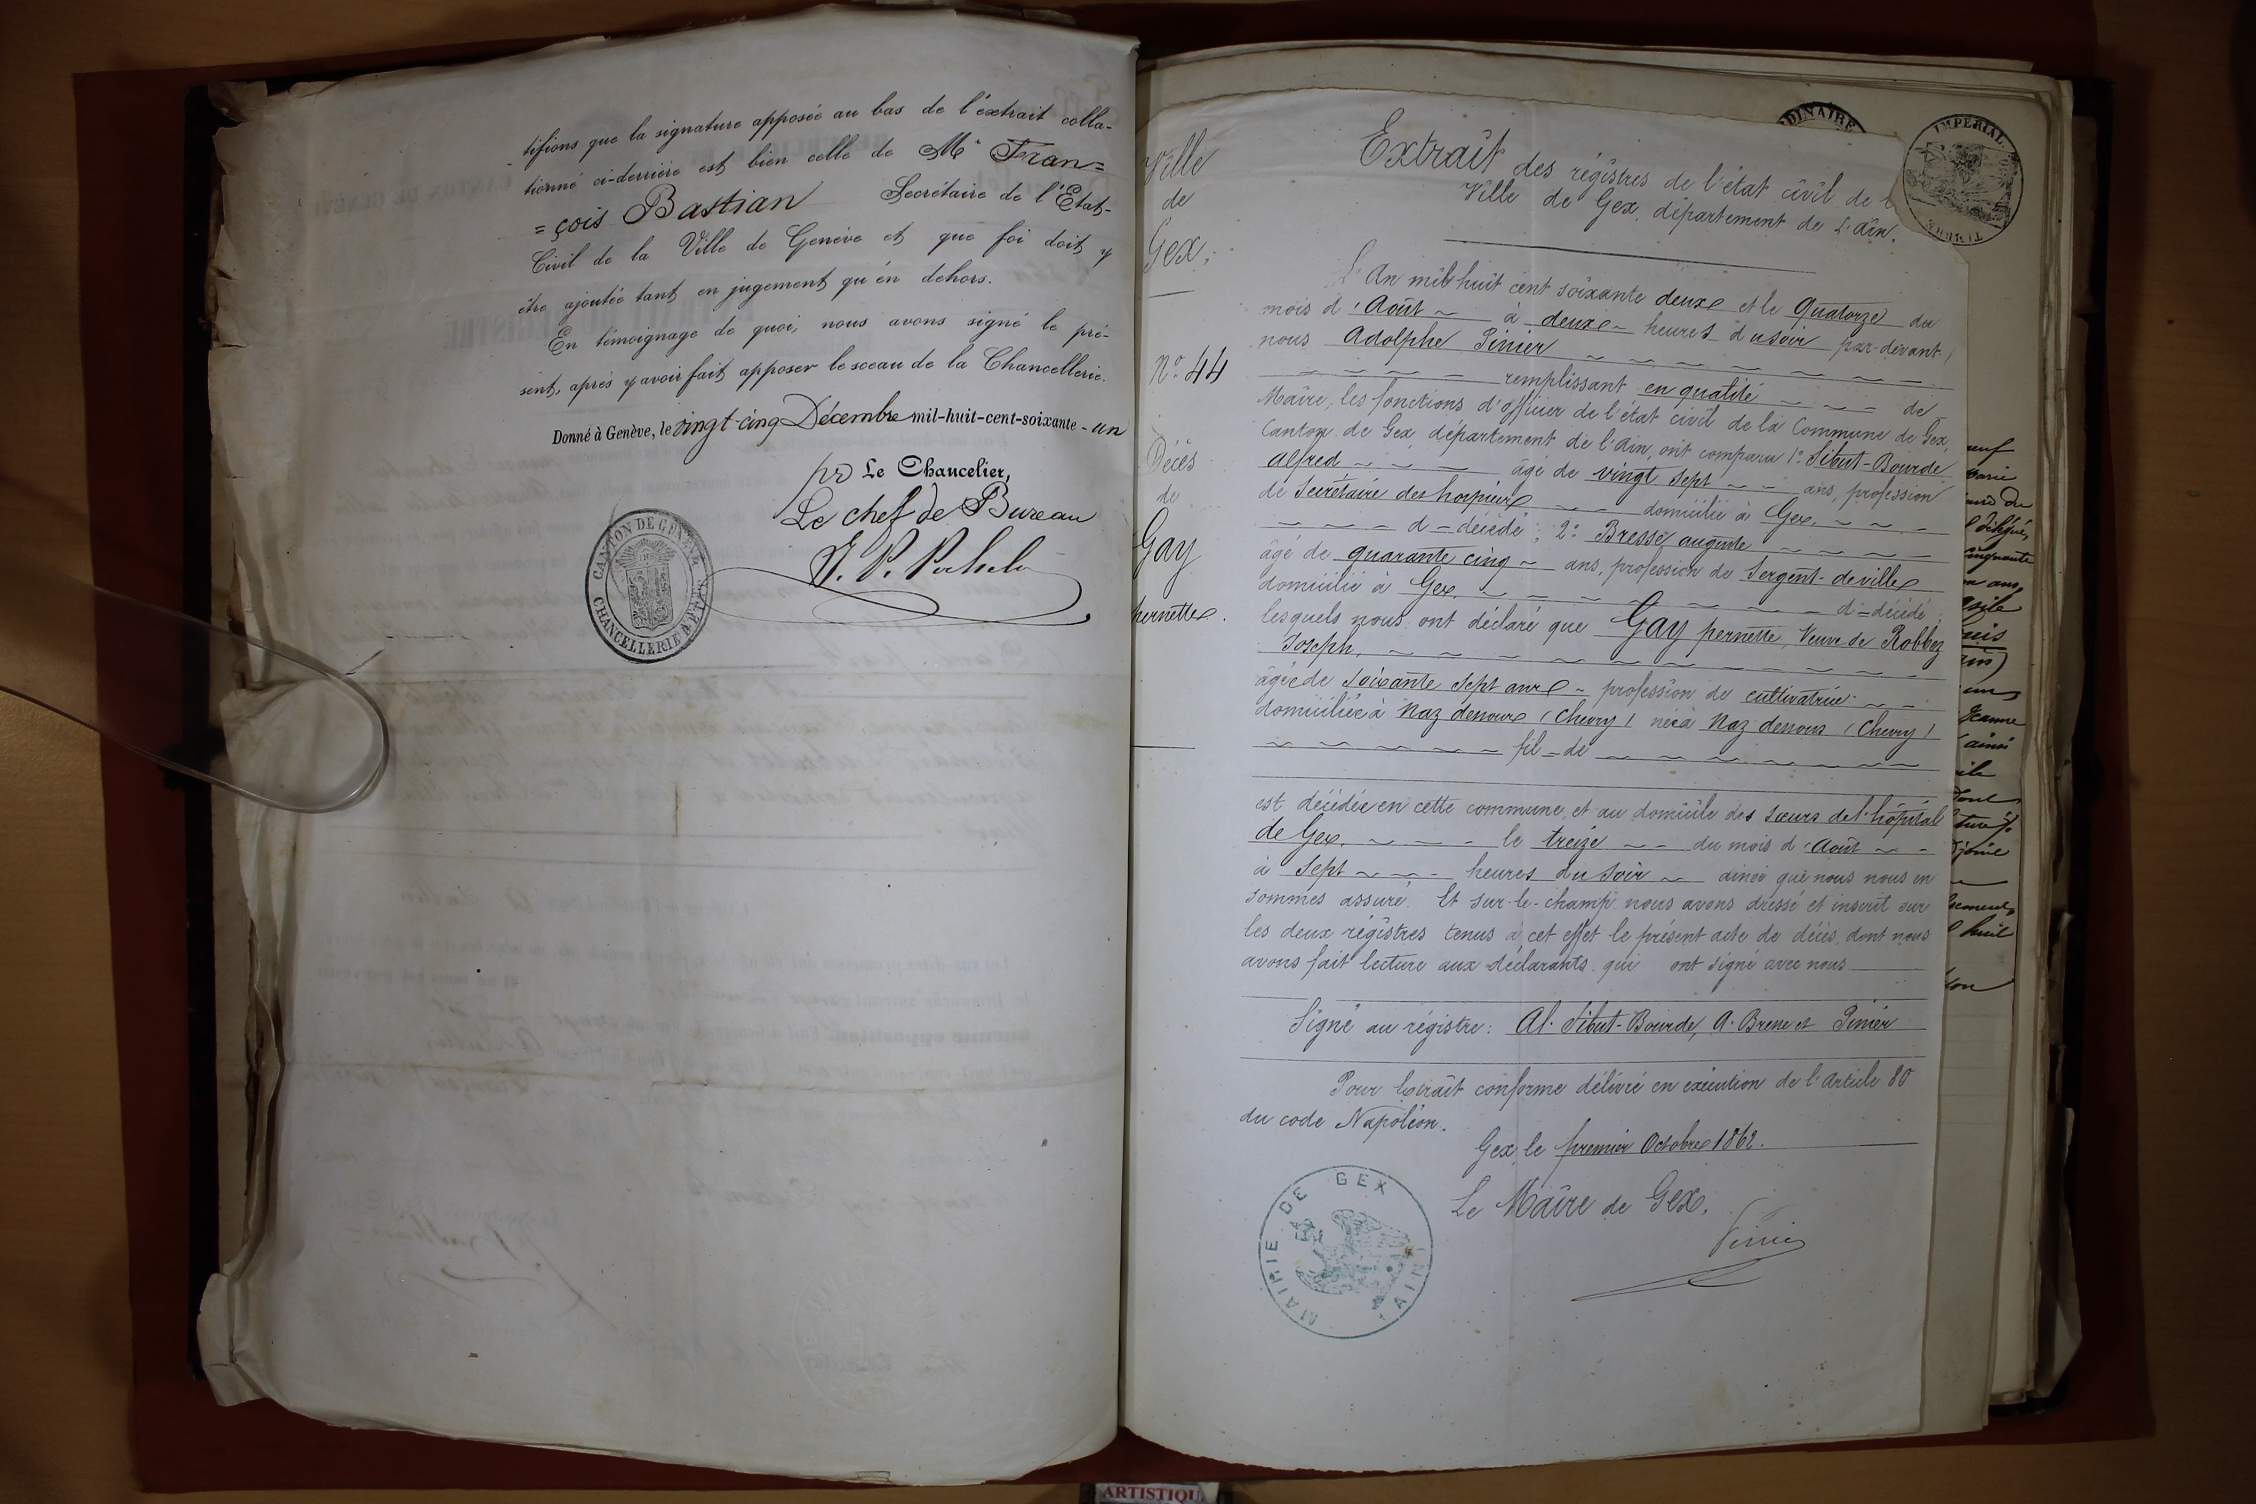 tifions que la signature apposée au bas de l'extrait colla-
tionné ci-derrière est bien celle de Mr Fran=
=çois Bastian Secrétaire de l'Etat-
Civil de la Ville de Genève et que foi doit y
être ajoutée tant en jugement qu'en dehors.
En témoignage de quoi, nous avons signé le pré-
sent, après y avoir fait apposer le sceau de la Chancellerie.
Donné à Genève, le vingt-cinq Décembre mil-huit-cent-soixante-un
pr Le Chancelier,
Le chef de Bureau
CANTON DE GENEVE
CHANCELLERIE D'ETAT
Ville
de
Gex.
No 44
Décès
de
Gay
pernette.
Extrait des régistres de l'état civil de l
Ville de Gex, département de l'Ain.
IMPERIAL
TIMBRE
L'An mil huit cent soixante deux et le Quatorze du
mois d'Août à deux heures du soir par-devant
nous Adolphe Pinier
remplissant en qualité de
Maire, les fonctions d'officier de l'état civil de la Commune de Gex,
Canton de Gex, département de l'Ain, ont comparu 1º Sibut-Bourde
Alfred âgé de vingt sept ans, profession
de Secrétaire des hospices domicilié à Gex,
d= décédé; 2º Bresse auguste
âgé de quarante cinq ans, profession de Sergent-de ville
domicilié à Gex. d=décédé;
lesquels nous ont déclaré que Gay pernette, Veuve de Robbez
Joseph,
âgée de soixante sept ans profession de cultivatrice
domiciliée à Naz dessous (Chevry) née à Naz dessous (Chevry)
fil=de
est décédée en cette commune, et au domicile des sœurs de l'hôpital
de Gex, le treize du mois d'Août
à Sept heures du soir ainsi que nous nous en
sommes assuré. Et sur-le-champ nous avons dressé et inscrit sur
les deux régistres tenus à cet effet le présent acte de décès, dont nous
avons fait lecture aux déclarants qui ont signé avec nous
Signé au régistre: Al. Sibut-Bourde, A. Bresse et Pinier
Pour Extrait conforme délivré en exécution de l'Article 80
du code Napoléon.
Gex, le premier Octobre 1862.
Le Maire de Gex,
Pinier
MAIRIE DE GEX
(AIN)
ARTISTIQU